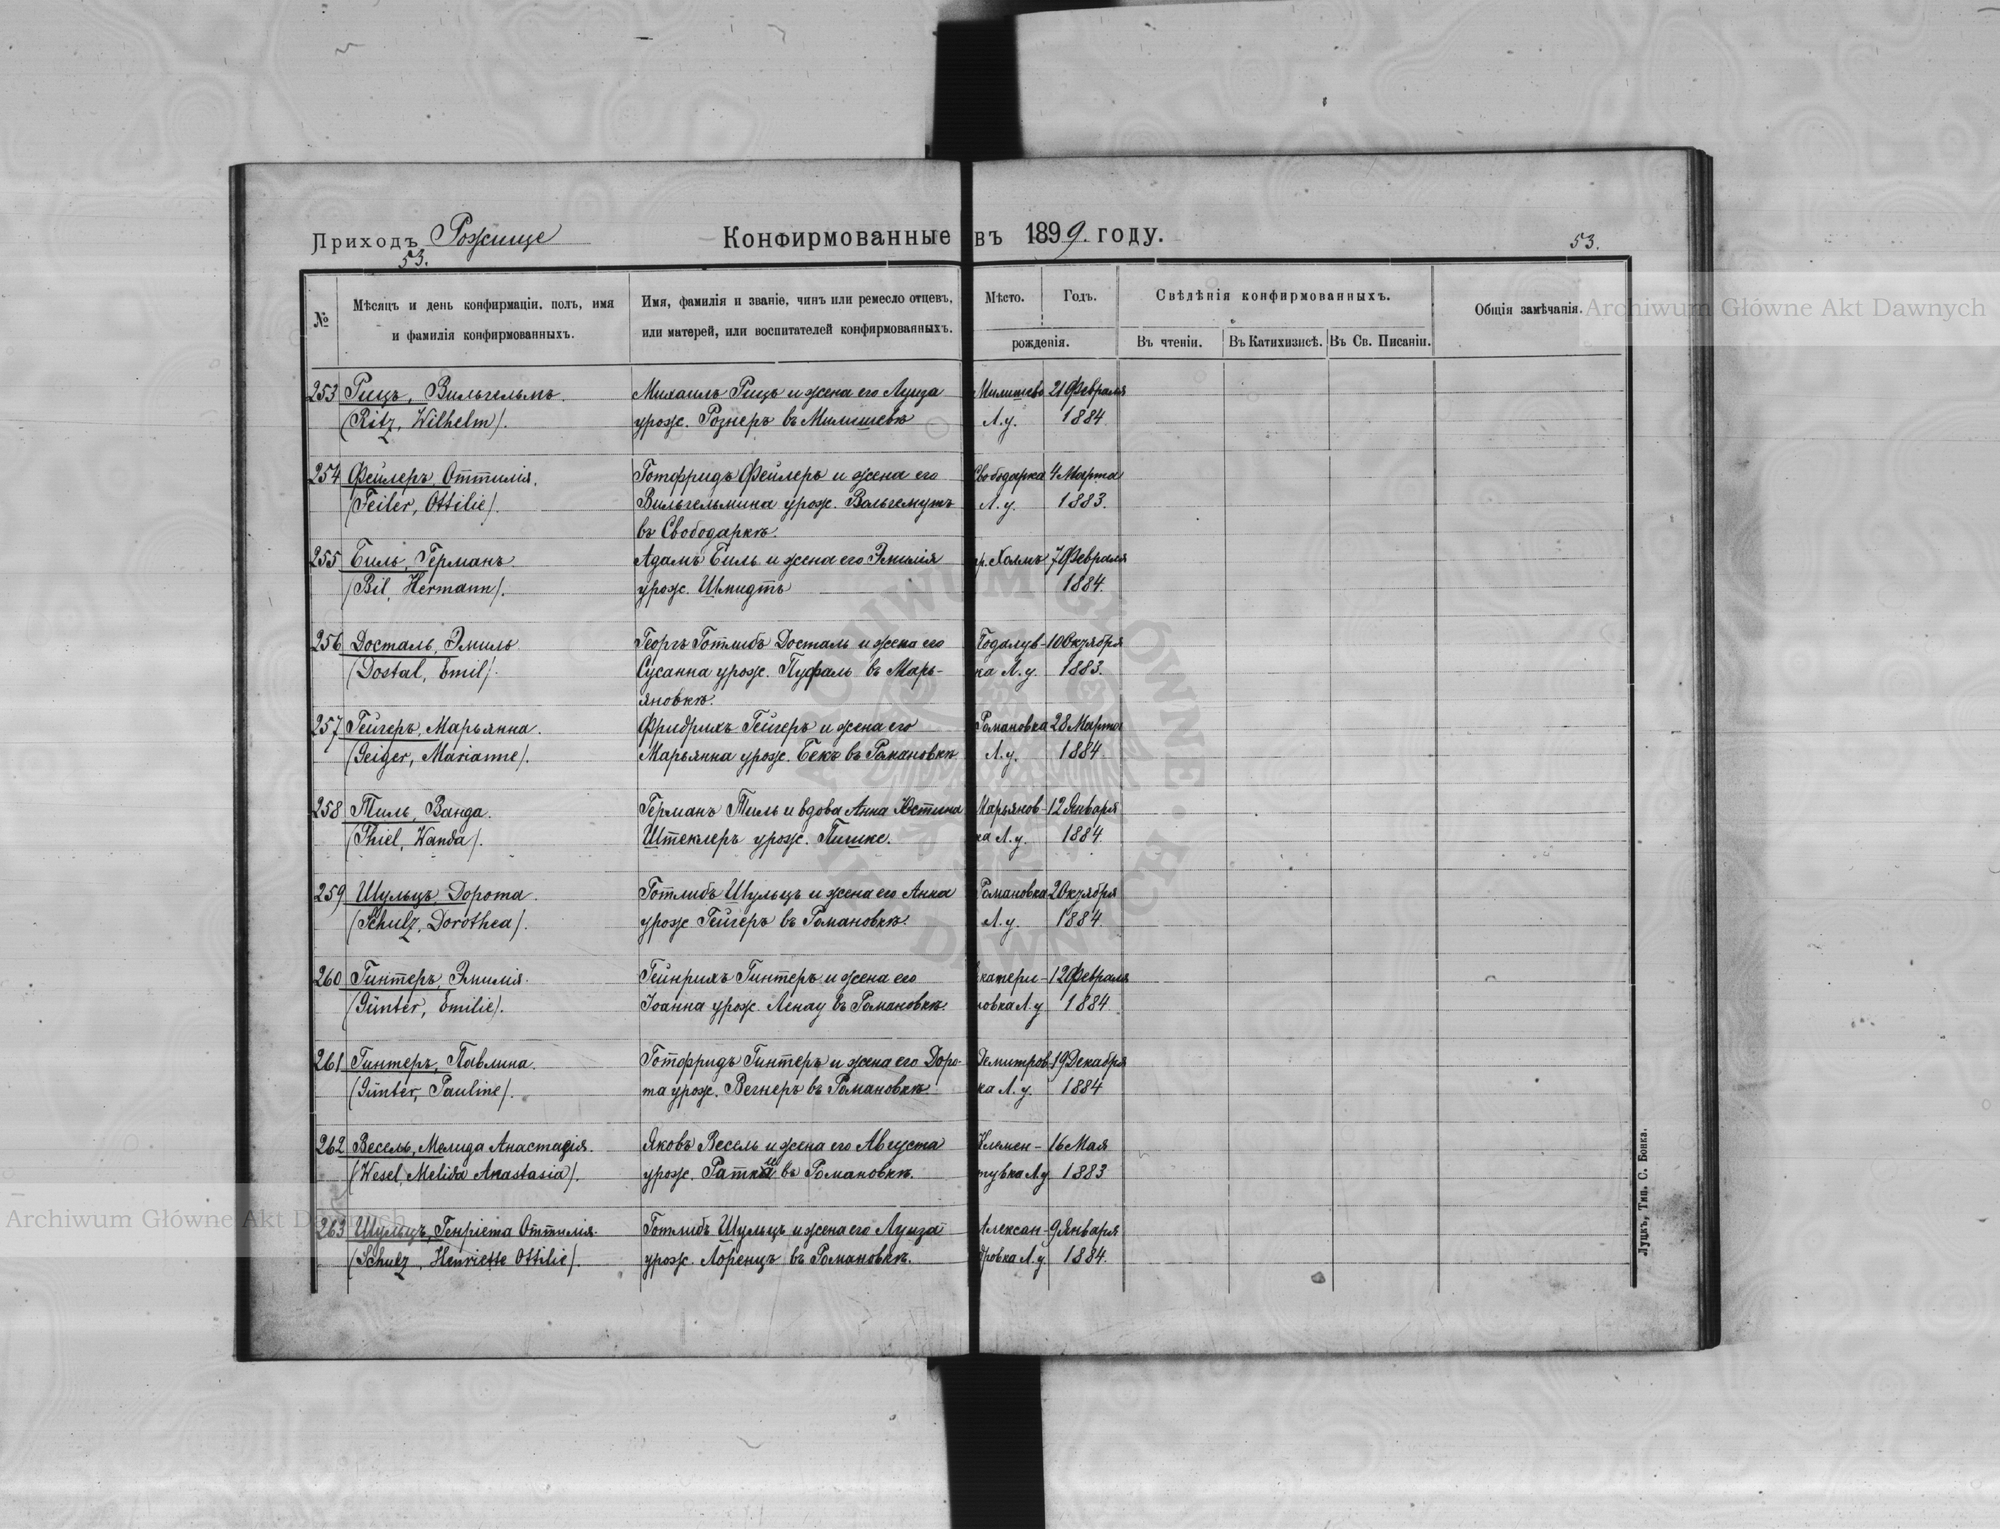 Приходъ Рожище
Конфирмованные въ 1899. году.
53.
53.
№
Мѣсяцъ и день конфирмаціи. полъ, имя
и фамилія конфирмованныхъ.
Имя, фамилія и званіе, чинъ или ремесло отцевъ,
или матерей, или воспитателей конфирмованныхъ.
Мѣсто. Годъ.
рожденія.
Свѣдѣнія конфирмованныхъ.
Въ чтеніи. Въ Катихизисѣ. Въ Св. Писаніи.
Общія замѣчанія.
253 Рицъ, Вильгельмъ. Михаилъ Рицъ и жена его Луиза Милишево 21 Февраля
(Ritz, Wilhelm). урож. Рознеръ въ Милишевѣ Л. у. 1884
254 Фейлеръ, Оттилія. Готфридъ Фейлеръ и жена его Свободарка 4 Марта
(Feiler, Ottilie). Вильгельмина урож. Вольгемутъ Л. у. 1883.
въ Свободаркѣ.
255 Биль, Германъ Адамъ Биль и жена его Эмилія гр. Холмъ 7 Февраля
(Bil, Hermann). урож. Шмидтъ 1884.
256 Досталь, Эмиль Георгъ Готлибъ Досталь и жена его Годалув- 10 Октября
(Dostal, Emil). Сусанна урож. Пуфаль въ Марь- ка Л. у. 1883.
яновкѣ.
257 Гейгеръ, Марьянна. Фридрихъ Гейгеръ и жена его Романовка 28 Марта
(Geiger, Marianne). Марьянна урож. Бекъ въ Романовкѣ Л. у. 1884
258 Тиль, Ванда. Германъ Тиль и вдова Анна Юстина Марьянов- 12 Января
(Thiel, Wanda). Штеклеръ урож. Пишке. ка Л. у. 1884.
259 Шульцъ, Дорота. Готлибъ Шульцъ и жена его Анна Романовка 2 Октября
(Schulz, Dorothea). урож. Гейгеръ въ Романовкѣ. Л. у. 1884.
260 Гинтеръ, Эмилія. Гейнрихъ Гинтеръ и жена его катери- 12 Февраля
(Günter, Emilie). Іоанна урож. Ленау въ Романовкѣ. новка Л. у 1884.
261 Гинтеръ, Павлина. Готфридъ Гинтеръ и жена его Доро- Демитров- 19 Декабря
(Günter, Pauline). та урож. Вегнеръ въ Романовкѣ. ка Л. у. 1884
262 Весель, Мелида Анастасія. Яковъ Весель и жена его Августа Клемен- 16 Мая
(Wesel, Melida Anastasia). урож. въ Романовкѣ. тувка Л. у 1883
263 Шульцъ, Генріета Оттилія. Готлибъ Шульцъ и жена его Луиза Алексан- 9 Января
(Schulz, Henriette Ottilie). урож. Лоренцъ въ Романовкѣ. дровка Л. у. 1884.
Луцкъ, Тип. С. Бонка.
Archiwum Główne Akt Dawnych
Archiwum Główne Akt Dawnych
ARCHIWUM GŁÓWNE AKT DAWNYCH